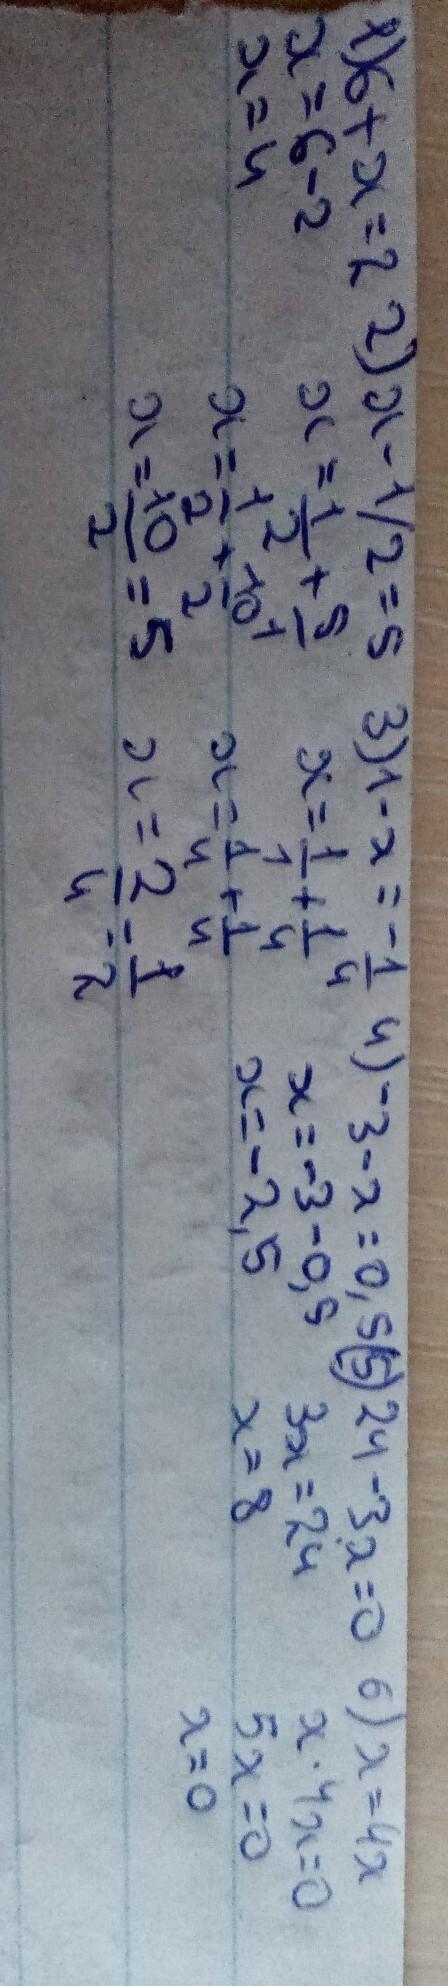 1) 6 + x = 2
x = 6 - 2
x = 4
2) x - 1/2 = 5
x = 1/2 + 5/1
x = 1/2 + 10/2
x = 10/2 = 5
3) 1 - x = -1/4
x = 1/1 + 1/4
x = 1/4 + 1/4
x = 2/4 = 1/2
4) -3 - x = 0,5
x = -3 - 0,5
x = -2,5
(5) 24 - 3x = 0
3x = 24
x = 8
6) x = 4x
x · 4x = 0
5x = 0
x = 0